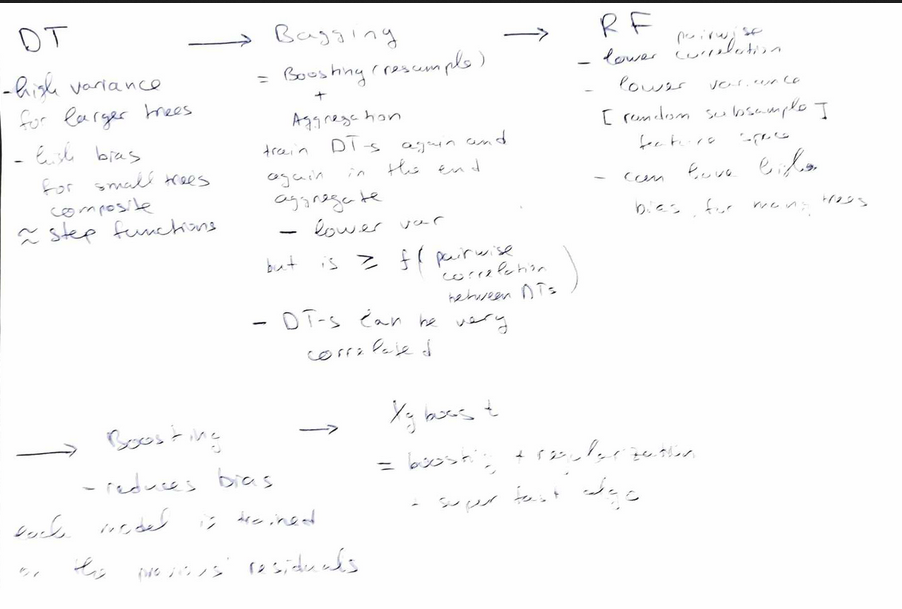 DT → Bagging → RF
- high variance
for larger trees
- high bias
for small trees
composite
≈ step functions
= Boosting (resample)
+
Aggregation
train DT-s again and
again in the end
aggregate
- lower var
but is ≥ f( pairwise
correlation
between DTs )
- DT-s can be very
correlated
pairwise
- lower correlation
- lower variance
[ random subsample ]
feature space
- can have higher
bias for many trees
→ Boosting → Xgboost
- reduces bias
each model is trained
on the previous residuals
= boosting + regularization
- super fast algo